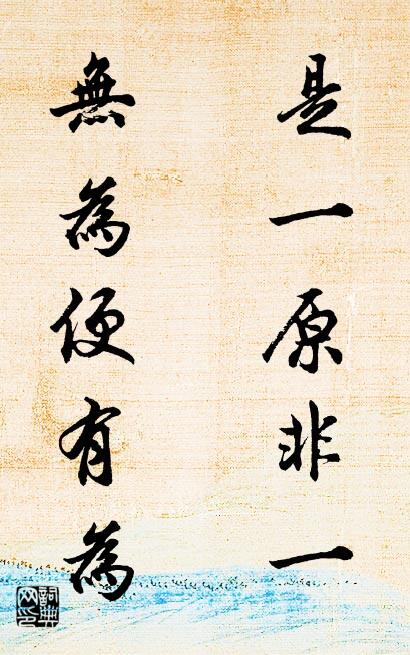 是一原非一
無為便有為
詞典網印